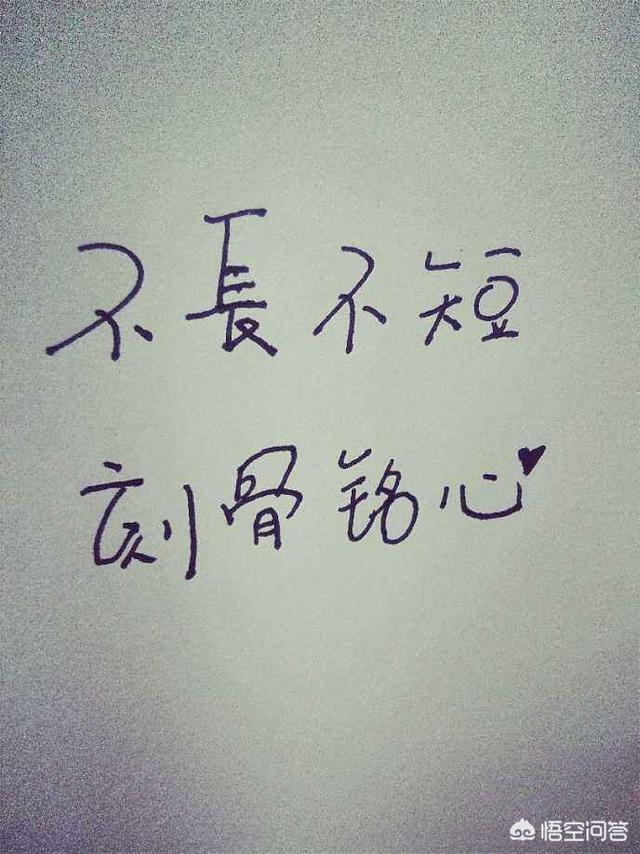 不長不短
刻骨铭心
悟空问答